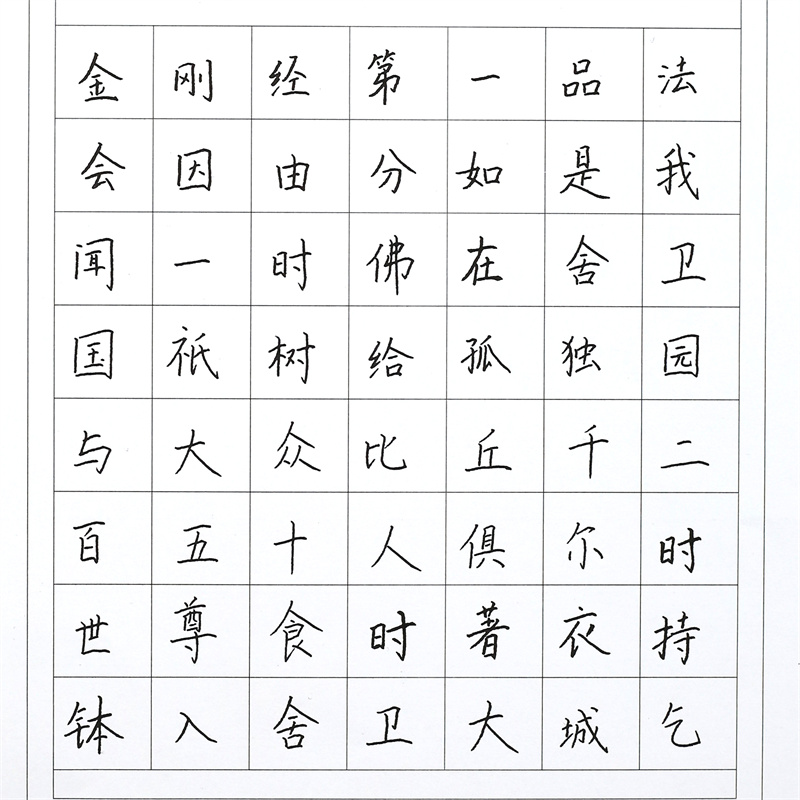 金刚经第一品法
会因由分如是我
闻一时佛在舍卫
国祇树给孤独园
与大众比丘千二
百五十人俱尔时
世尊食时著衣持
钵入舍卫大城乞